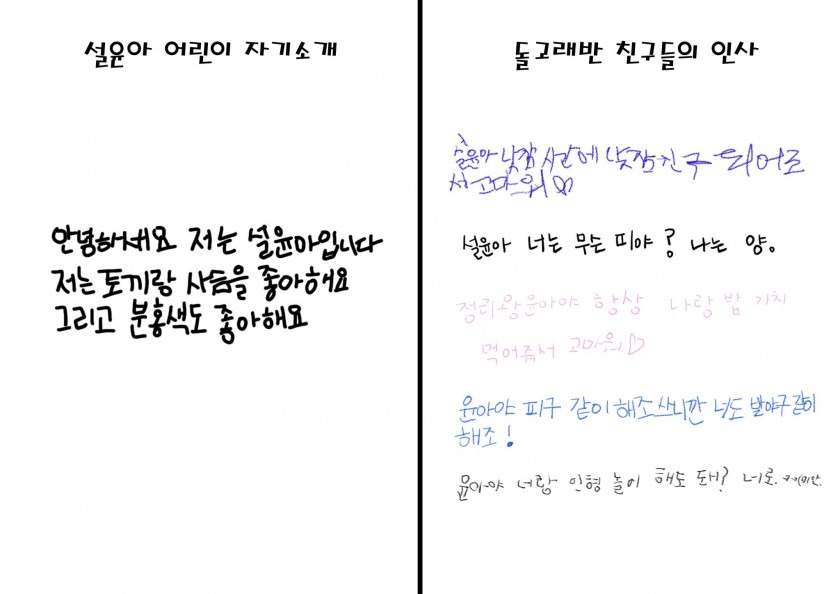 설윤아 어린이 자기소개
안녕하세요 저는 설윤아입니다
저는 토끼랑 사슴을 좋아해요
그리고 분홍색도 좋아해요
돌고래반 친구들의 인사
설윤아 낮잠 시간에 낮잠친구 되어로
서 고마워
설윤아 너는 무슨 피야? 나는 양.
정리왕윤아야 항상 나랑 밥 가치
먹어줘서 고마워♡
윤아야 피구 같이 해조스니깐 너도 발야구 같이
해조!
윤아야 너랑 인형 놀이 해도 돼?